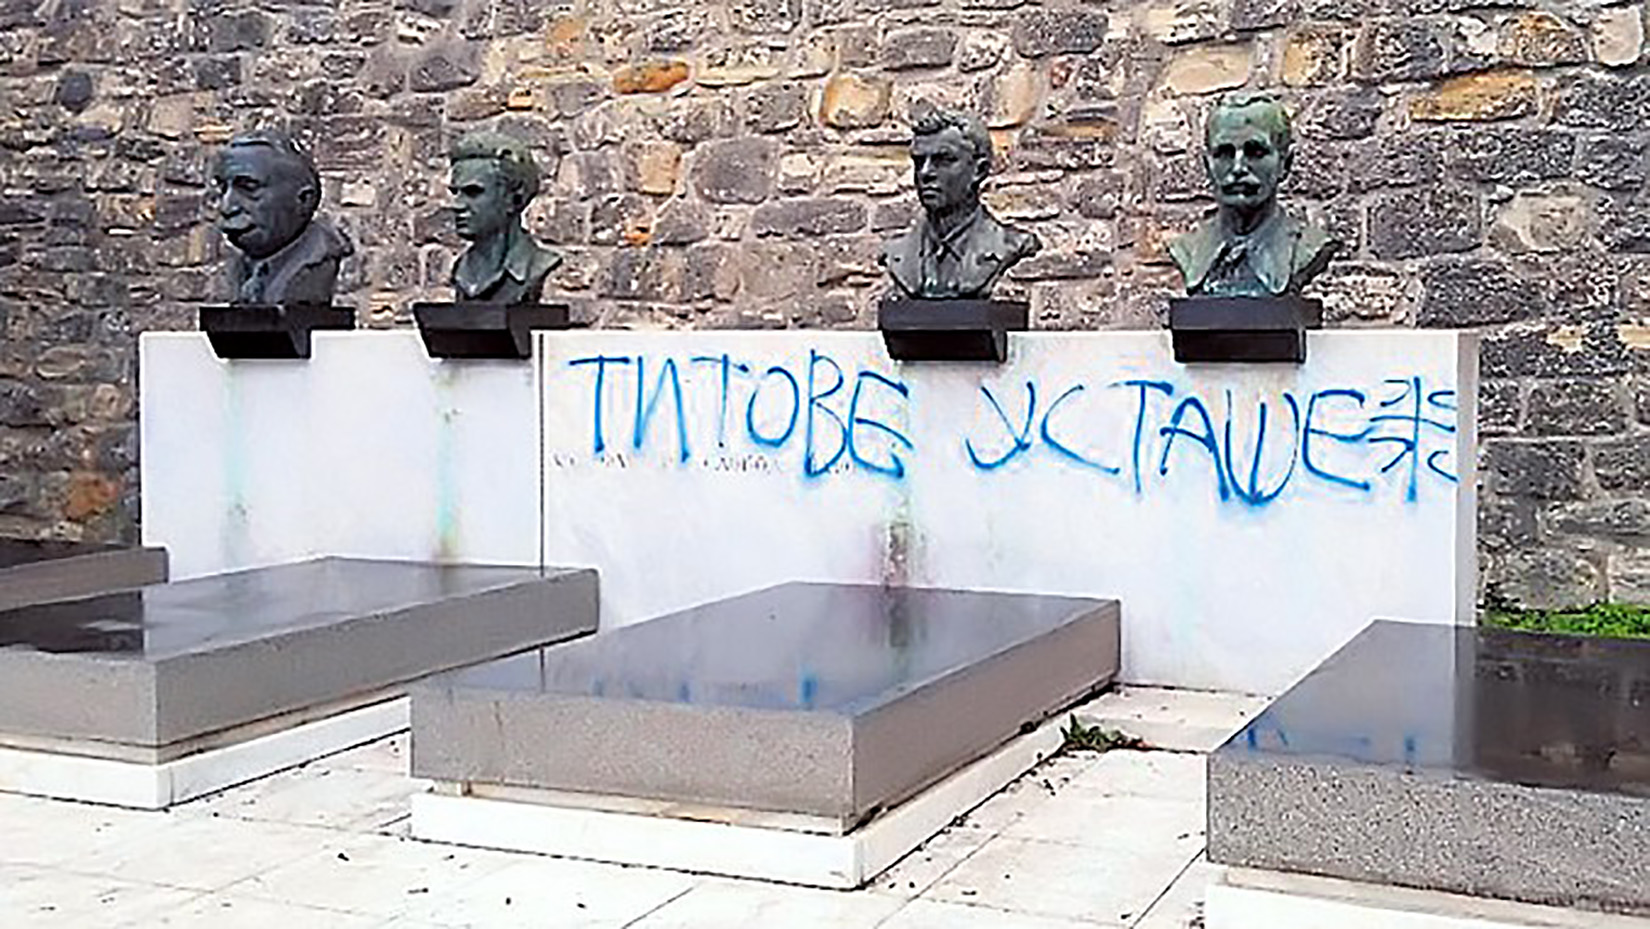 ТИТОВЕ УСТАШЕ